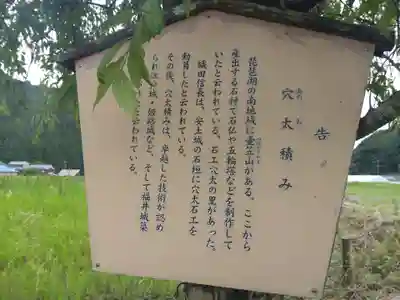 告
穴太積み
琵琶湖の南域に壷笠山がある。ここから
産出する石材で石仏や五輪塔などを制作して
いたと云われている。石工穴太の里があった。
織田信長は、安土城の石垣に穴太石工を
動員したと云われている。
その後、穴太積みは、卓越した技術が認め
られ 城・姫路城など、そして福井城築
と云われている。